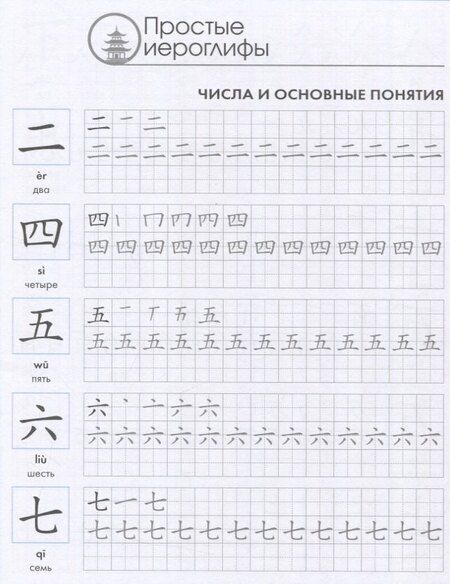 Простые
иероглифы
ЧИСЛА И ОСНОВНЫЕ ПОНЯТИЯ
二
èr
два
二 一 二
二 二 二 二 二 二 二 二 二 二 二 二 二
四
sì
четыре
四 丨 冂 四
四 四 四 四 四 四 四 四 四 四 四 四 四
五
wŭ
пять
五 一 丅 五
五 五 五 五 五 五 五 五 五 五 五 五 五
六
liù
шесть
六 丶 亠 六
六 六 六 六 六 六 六 六 六 六 六 六 六
七
qī
семь
七 一 七
七 七 七 七 七 七 七 七 七 七 七 七 七